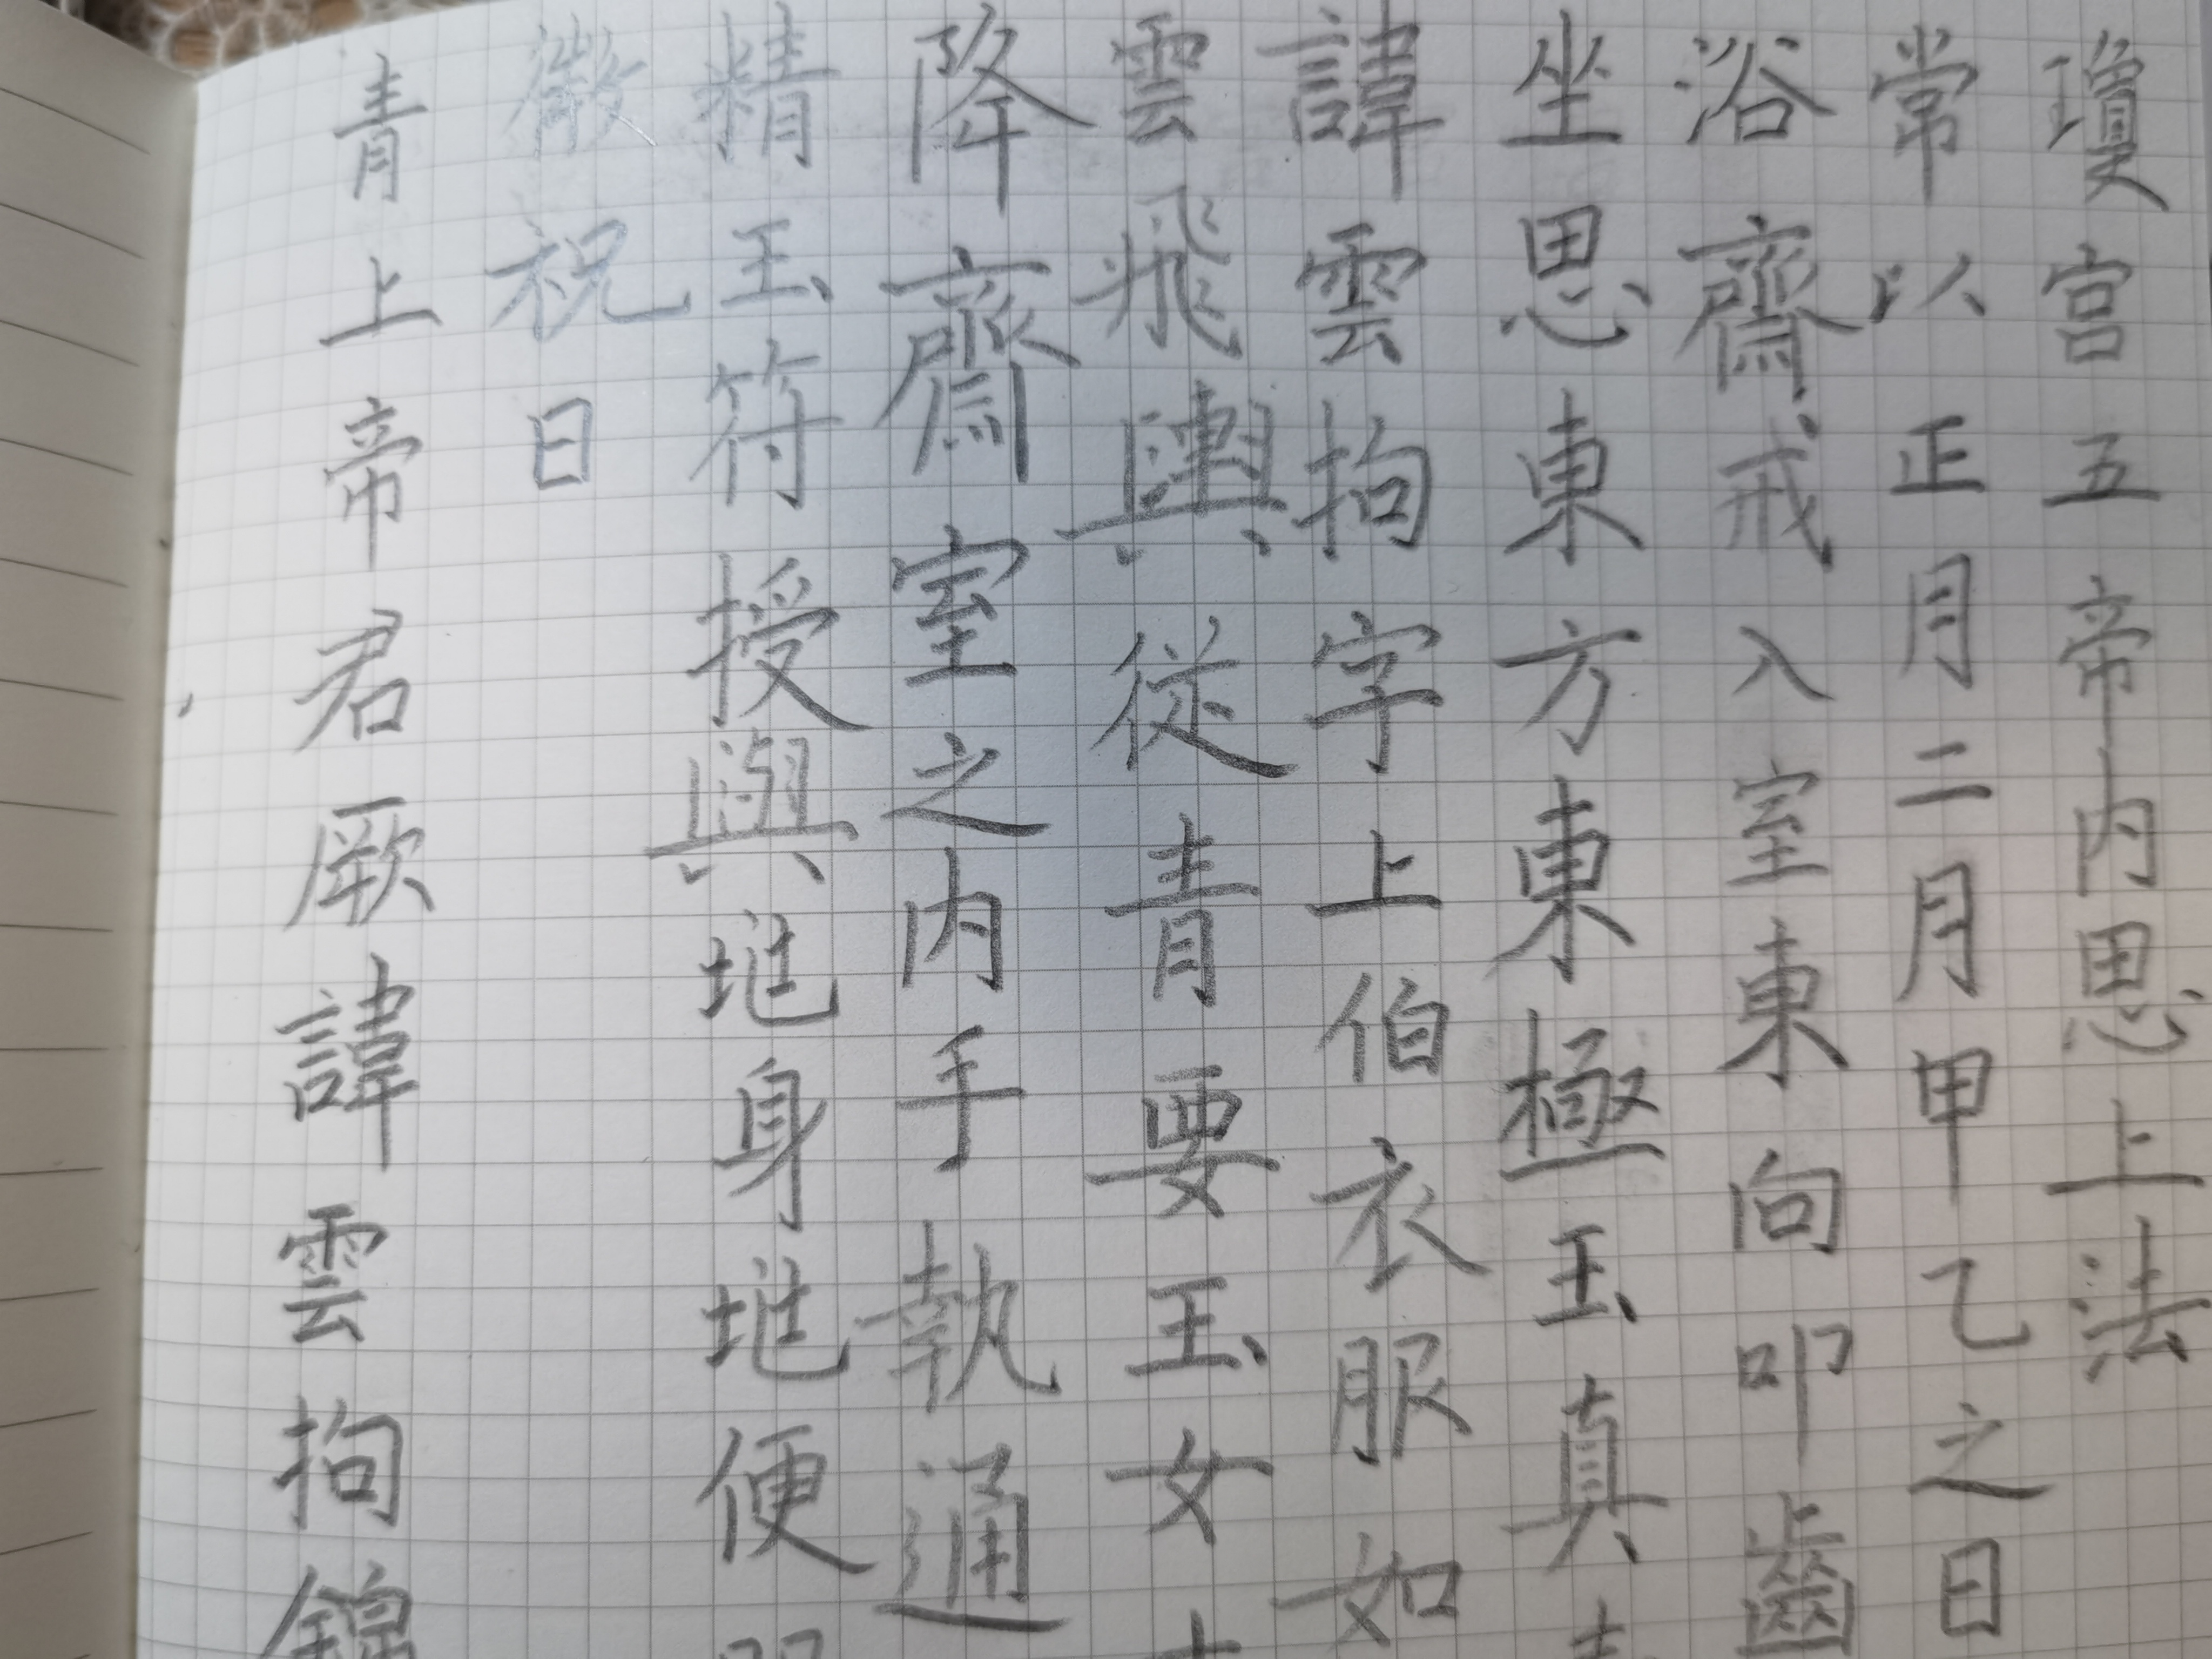 瓊宮五帝内思上法
常以正月二月甲乙之日
浴齋戒入室東向叩齒
坐思東方東極玉真青
諱雲拘字上伯衣服如
雲飛輿從青要玉女十
降齋室之内手執通
精玉符授與地身地便
微祝曰
青上帝君厥諱雲拘錦